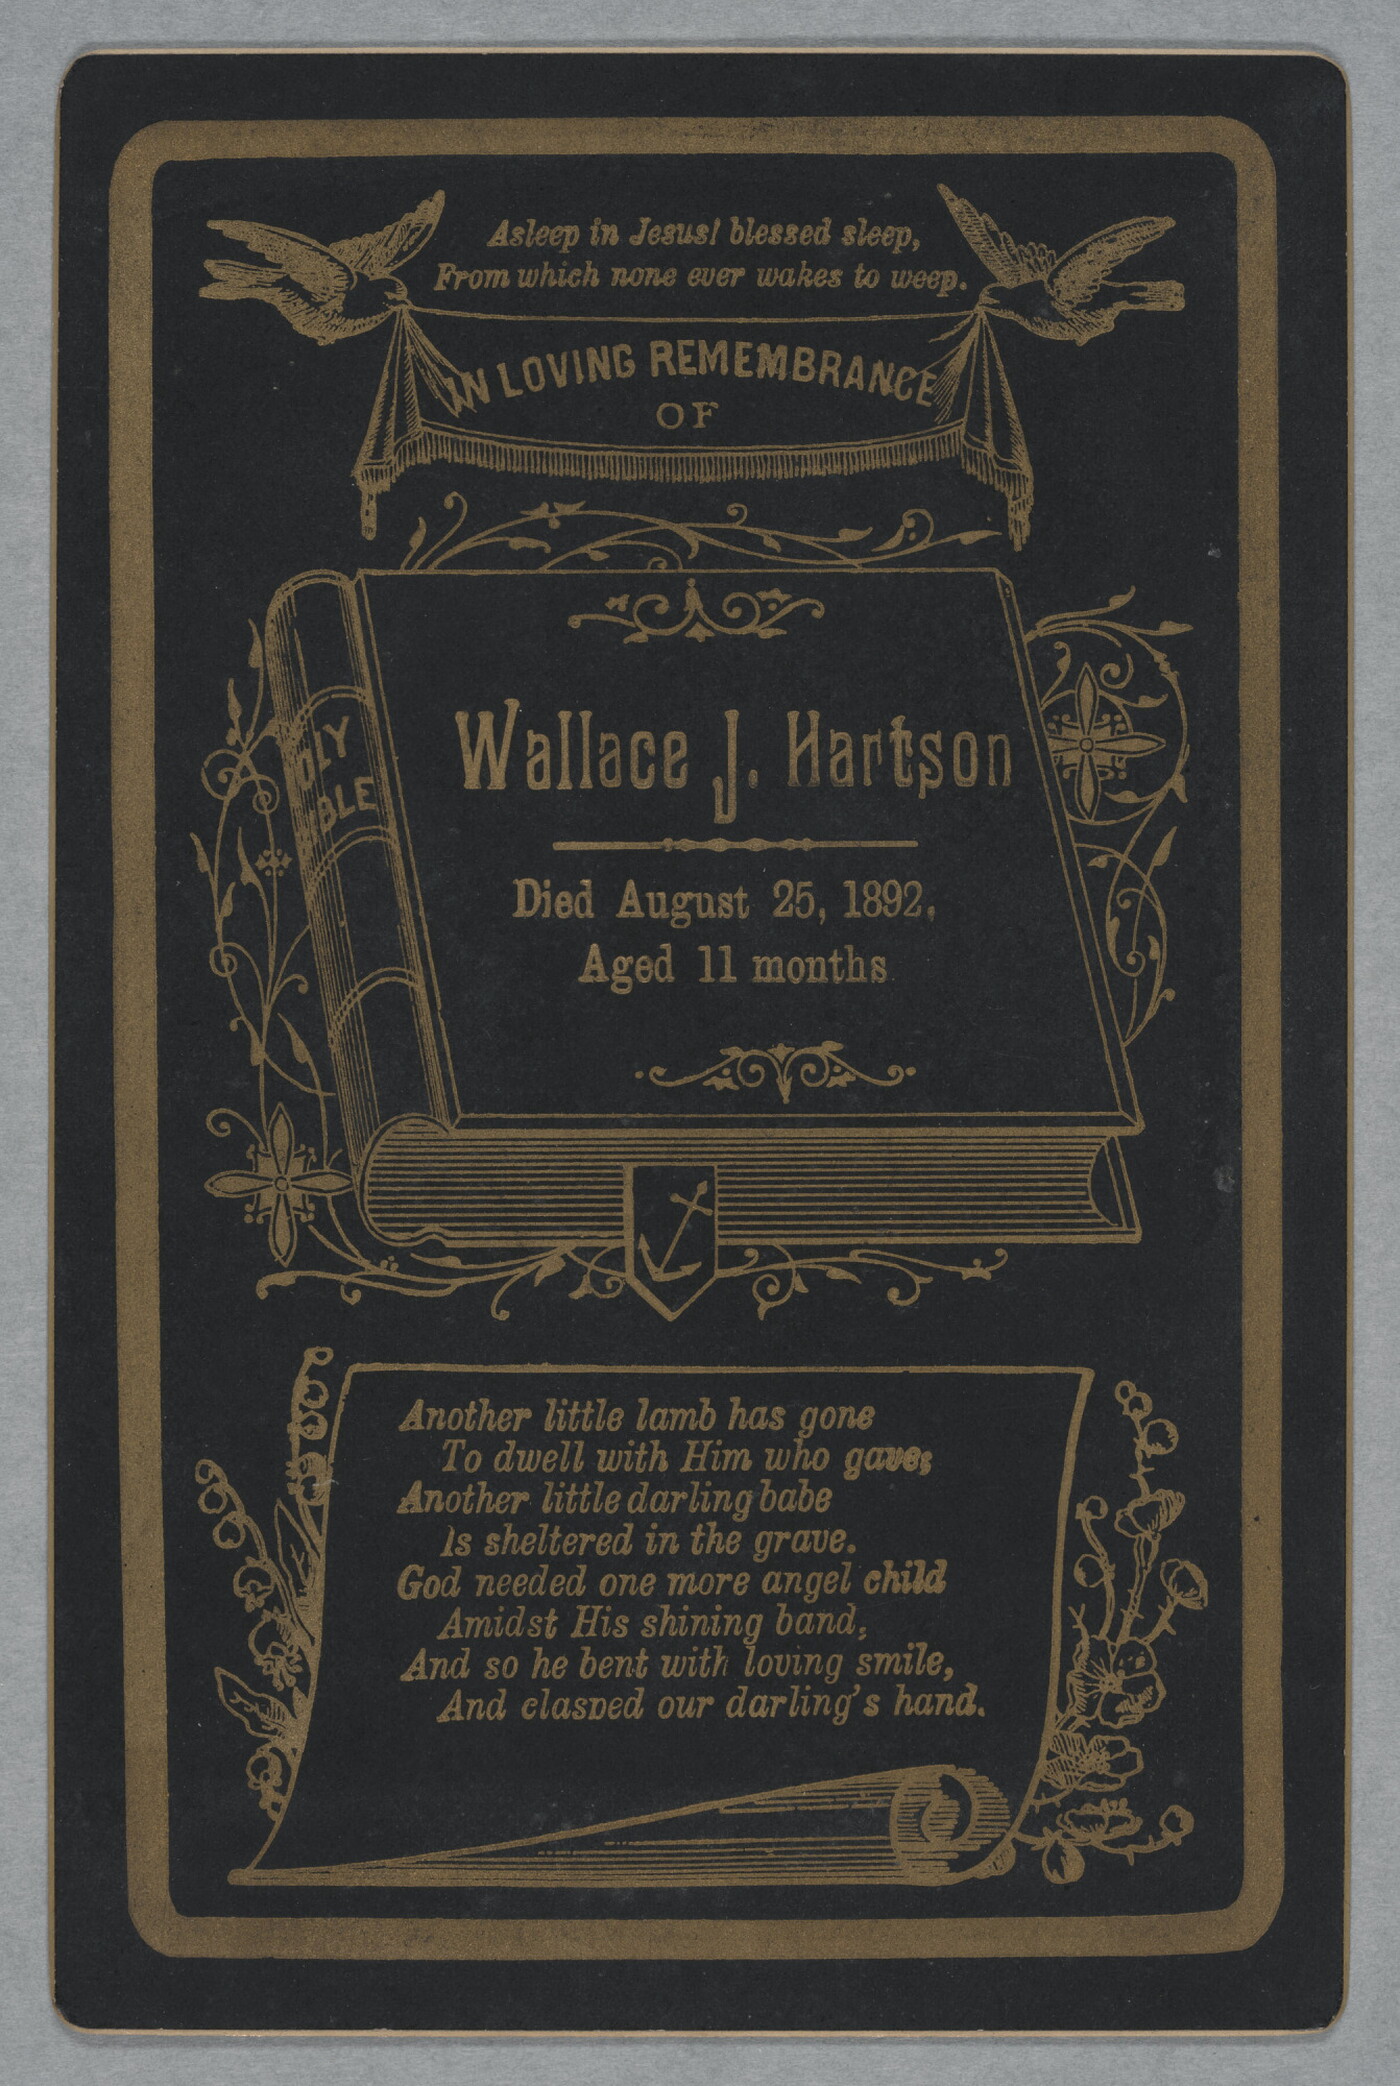 Asleep in Jesus! blessed sleep,
From which none ever wakes to weep.
IN LOVING REMEMBRANCE
OF
OLY
BLE
Wallace J. Hartson
Died August 25, 1892,
Aged 11 months
Another little lamb has gone
To dwell with Him who gave;
Another little darling babe
Is sheltered in the grave.
God needed one more angel child
Amidst His shining band;
And so he bent with loving smile,
And clasped our darling's hand.